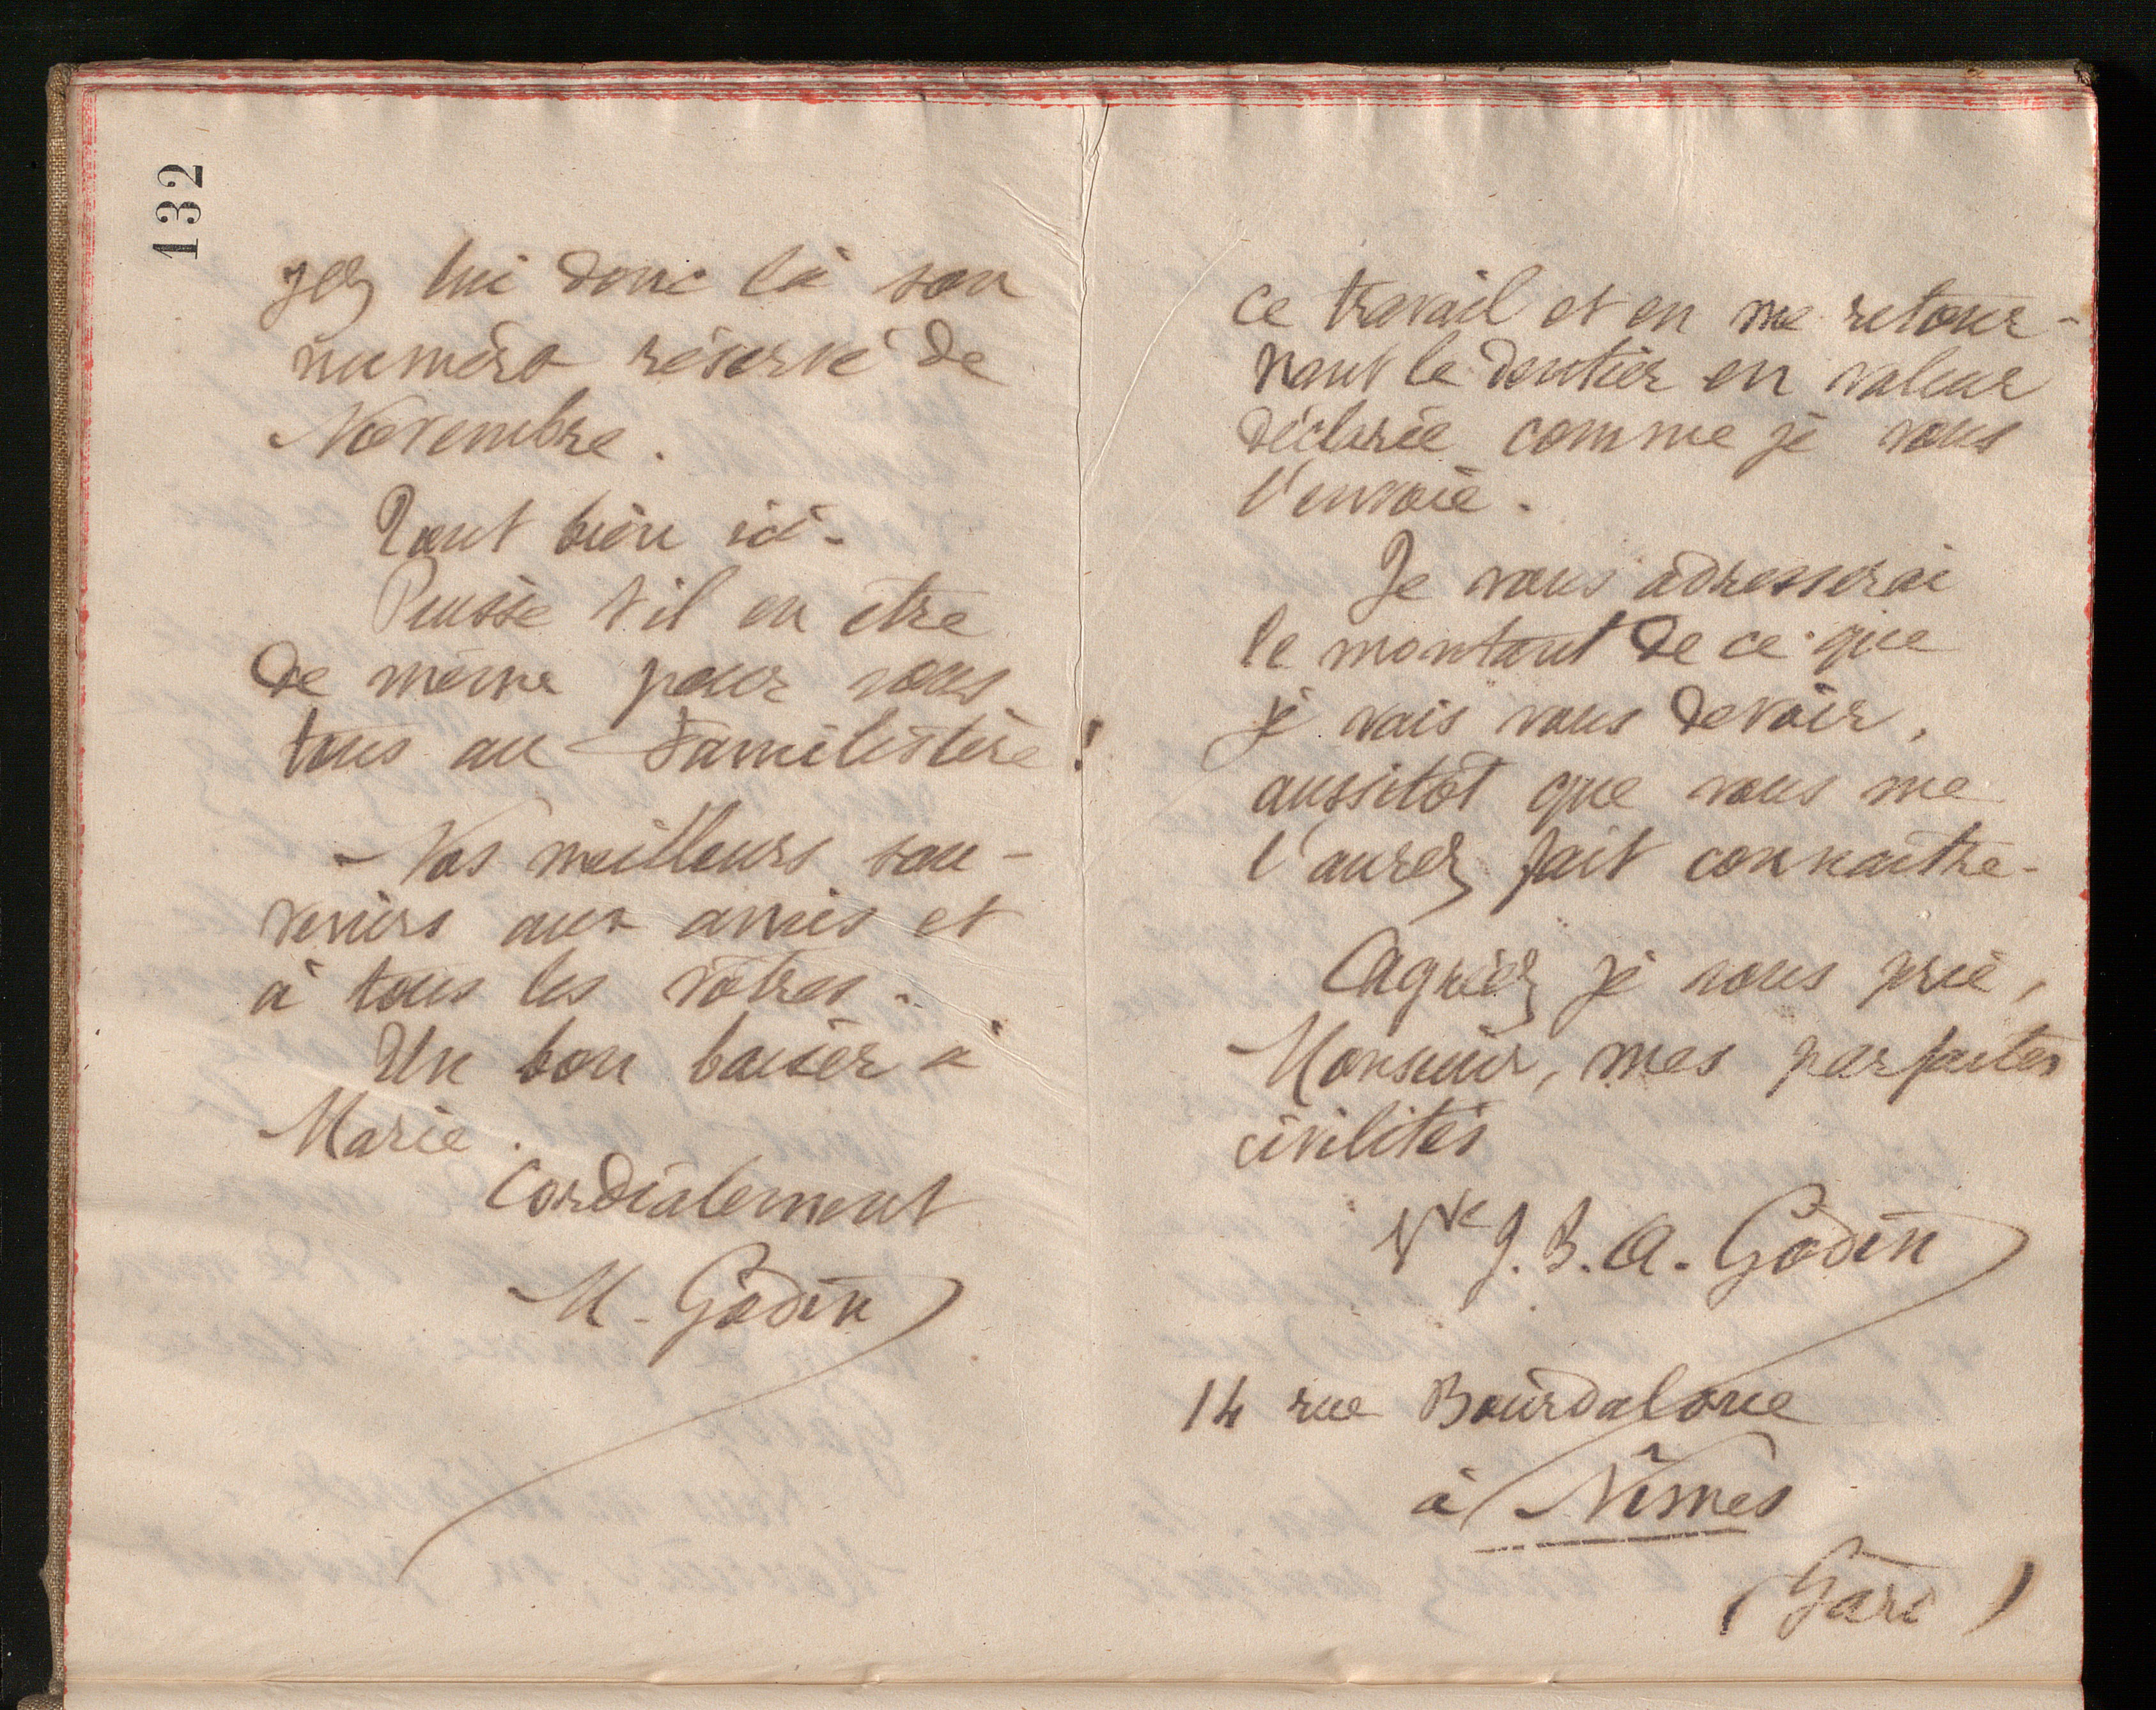 132
yez lui donc là son
numéro réservé de
Novembre.
Tout bien ici.
Puisse t il en être
de même pour vous
tous au Familistère !
Nos meilleurs sou-
venirs aux amis et
à tous les vôtres.
Un bon baiser à
Marie.
Cordialement
M. Godin
ce travail et en me retour-
nant le dentier en valeur
déclarée comme je vous
l'envoie.
Je vous adresserai
le montant de ce que
je vais vous devoir,
aussitôt que vous me
l'aurez fait connaître.
Agréez je vous prie,
Monsieur, mes parfaites
civilités
Vve J. B. A. Godin
14 rue Bourdaloue
à Nîmes
(Gard)